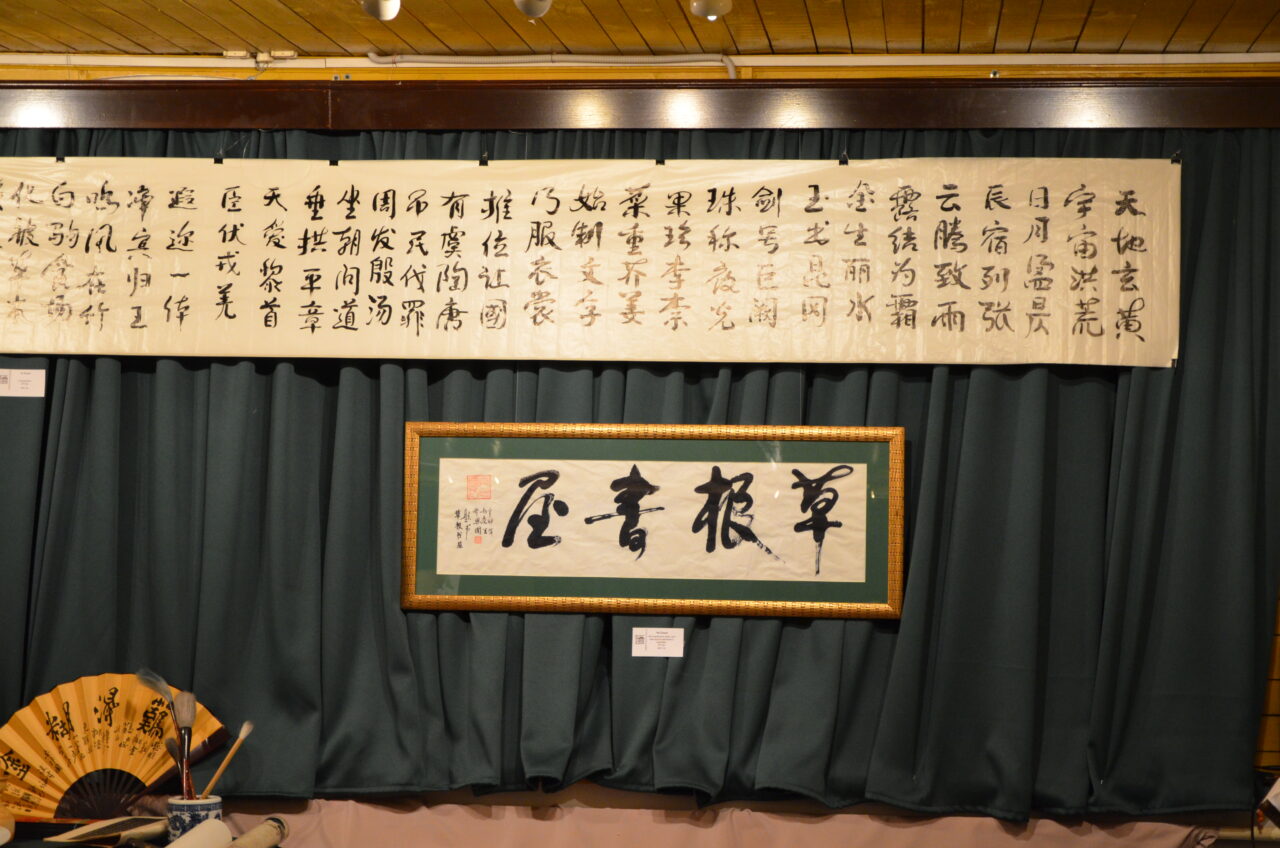 天地玄黄
宇宙洪荒
日月盈昃
辰宿列张
云腾致雨
露结为霜
金生丽水
玉出昆冈
剑号巨阙
珠称夜光
果珍李柰
菜重芥姜
始制文字
乃服衣裳
推位让國
有虞陶唐
吊民伐罪
周发殷汤
坐朝问道
垂拱平章
天爱黎首
臣伏戎羌
遐迩一体
率宾归王
鸣凤在竹
白驹食场
化被草木
草根書屋
難得糊塗